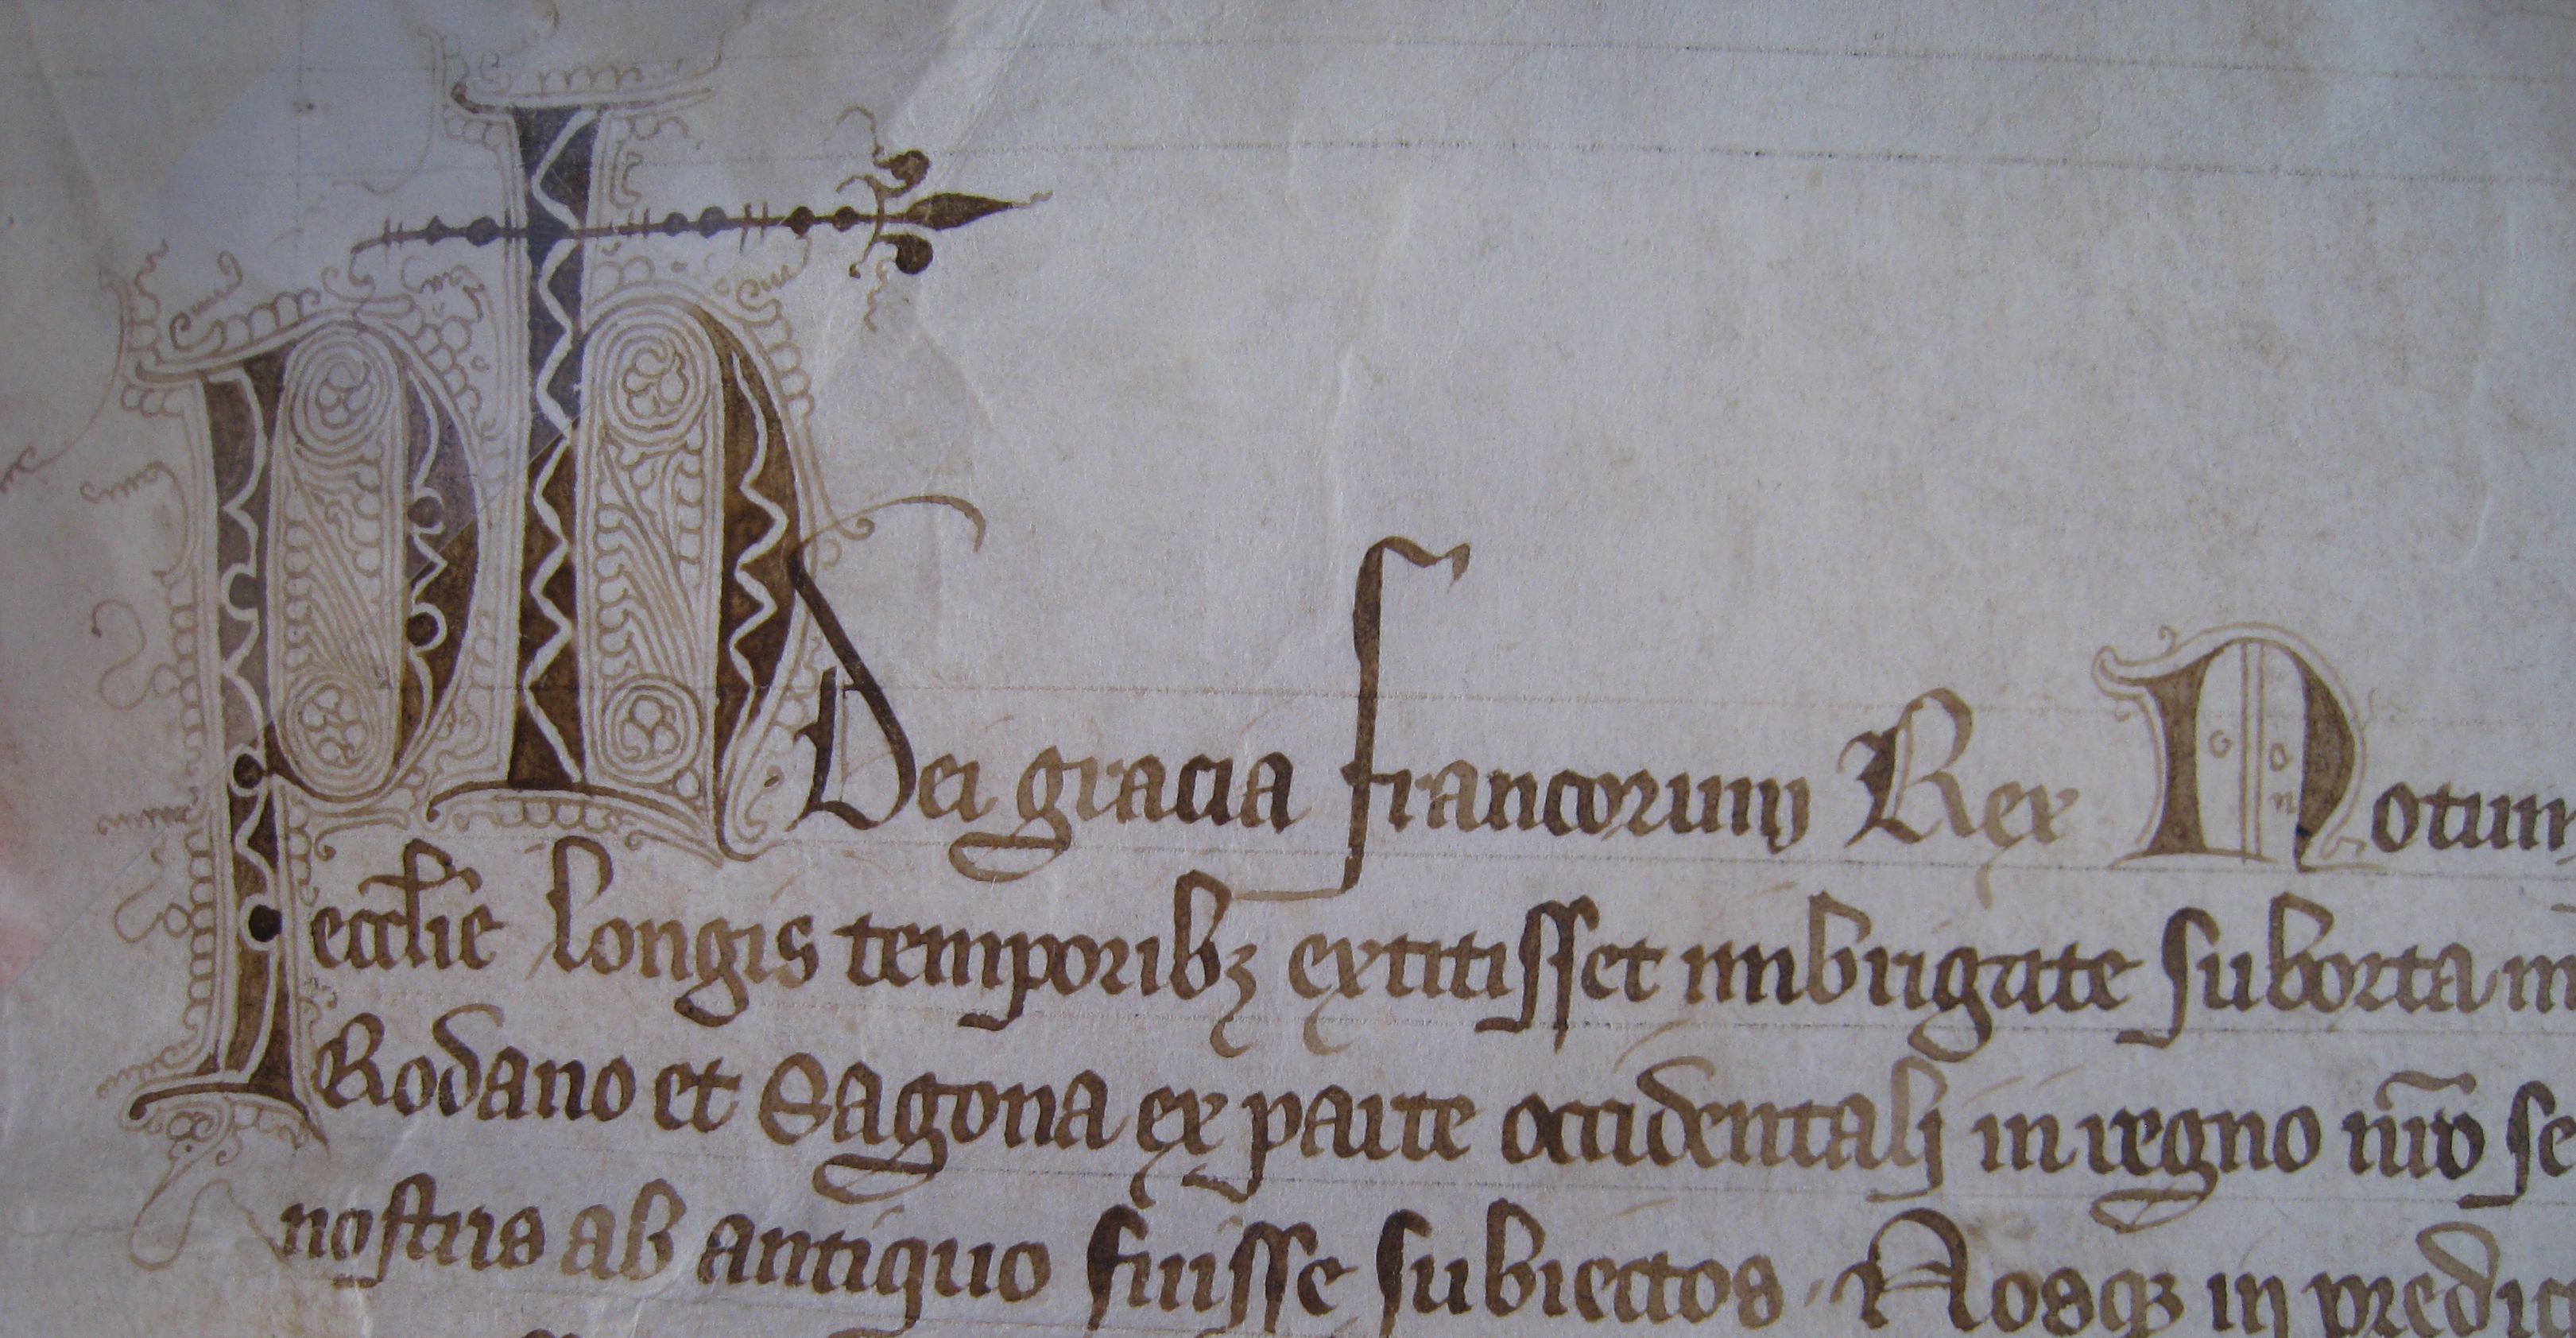 Ph Dei gracia francorum Rex Notum
eccl̄ie longis temporibꝫ extitisset imbrigate suborta in
Rodano et Sagona ex parte occidentali in regno nr̄o se
nostris ab antiquo fuisse subiectos. Nosqꝫ in predic